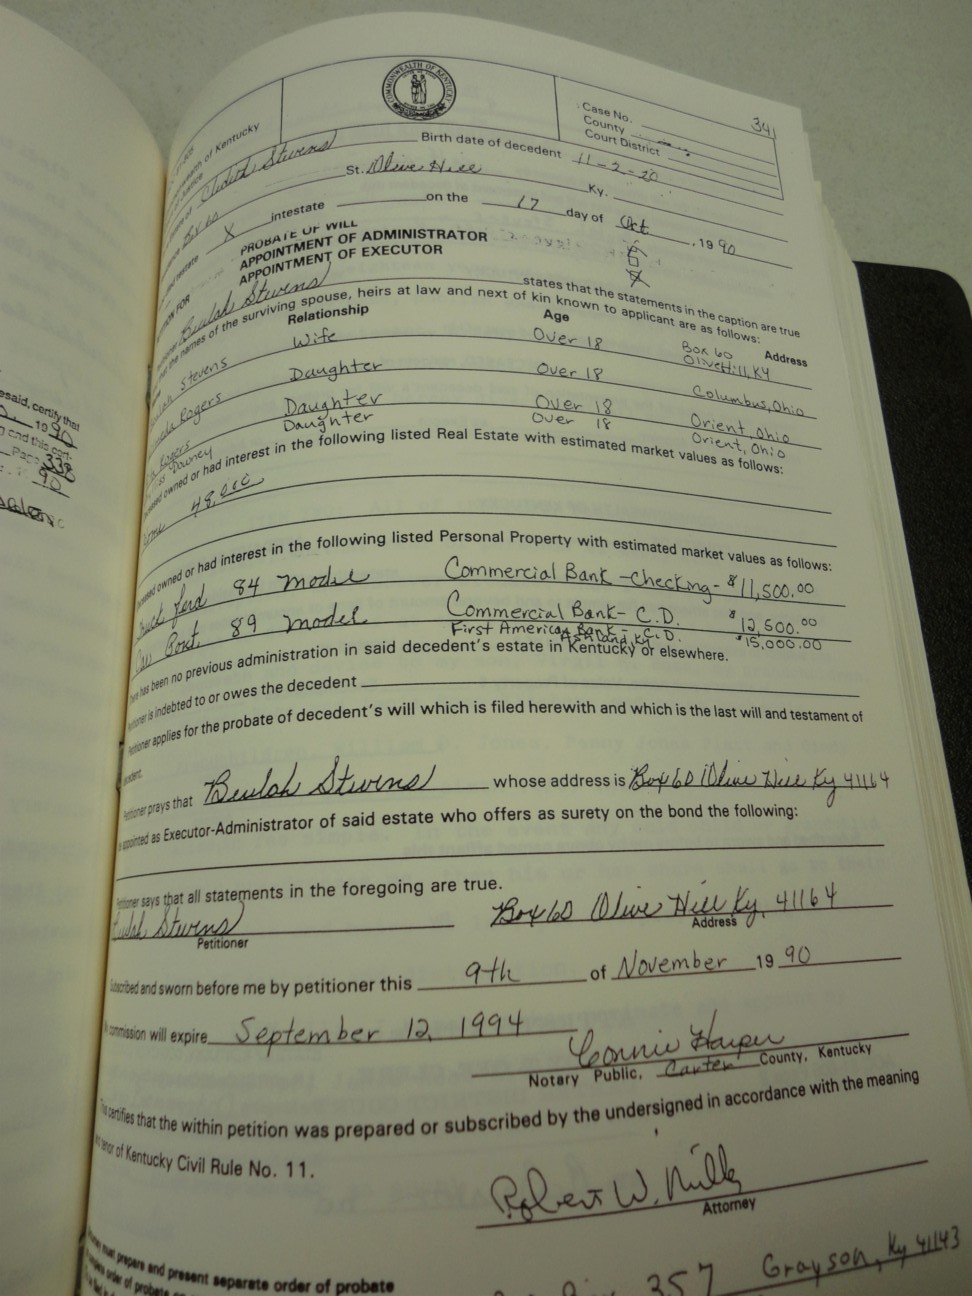 esaid, certify that
19 90
and this cer-
Page 338
90
341
COMMONWEALTH OF KENTUCKY
Case No.
County
Court District
wealth of Kentucky
Stevens Birth date of decedent 11-2-20
Box 60 St. Olive Hill Ky.
X intestate on the 17 day of Oct , 1990
PROBATE OF WILL
APPOINTMENT OF ADMINISTRATOR
APPOINTMENT OF EXECUTOR X
Beulah Stevens states that the statements in the caption are true
the names of the surviving spouse, heirs at law and next of kin known to applicant are as follows:
Relationship Age Address
Stevens Wife Over 18 Box 60 Olive Hill, KY
Rogers Daughter Over 18 Columbus, Ohio
Rogers Daughter Over 18 Orient, Ohio
Downey Daughter Over 18 Orient, Ohio
owned or had interest in the following listed Real Estate with estimated market values as follows:
48,000
owned or had interest in the following listed Personal Property with estimated market values as follows:
Truck Ford 84 Model Commercial Bank - Checking - $11,500.00
Car Pont. 89 Model Commercial Bank - C.D. $12,500.00
First American Bank - C.D. $15,000.00
Ashland, Ky
There has been no previous administration in said decedent's estate in Kentucky or elsewhere.
Petitioner is indebted to or owes the decedent
Petitioner applies for the probate of decedent's will which is filed herewith and which is the last will and testament of
decedent.
Petitioner prays that Beulah Stevens whose address is Box 60 Olive Hill Ky 41164
appointed as Executor-Administrator of said estate who offers as surety on the bond the following:
Petitioner says that all statements in the foregoing are true.
Beulah Stevens Box 60 Olive Hill Ky, 41164
Petitioner Address
Subscribed and sworn before me by petitioner this 9th of November 19 90
commission will expire September 12, 1994
Connie Harper
Notary Public, Carter County, Kentucky
This certifies that the within petition was prepared or subscribed by the undersigned in accordance with the meaning
tenor of Kentucky Civil Rule No. 11.
Robert W. Miller
Attorney
must prepare and present separate order of probate
357 Grayson, Ky 41143
order of probate